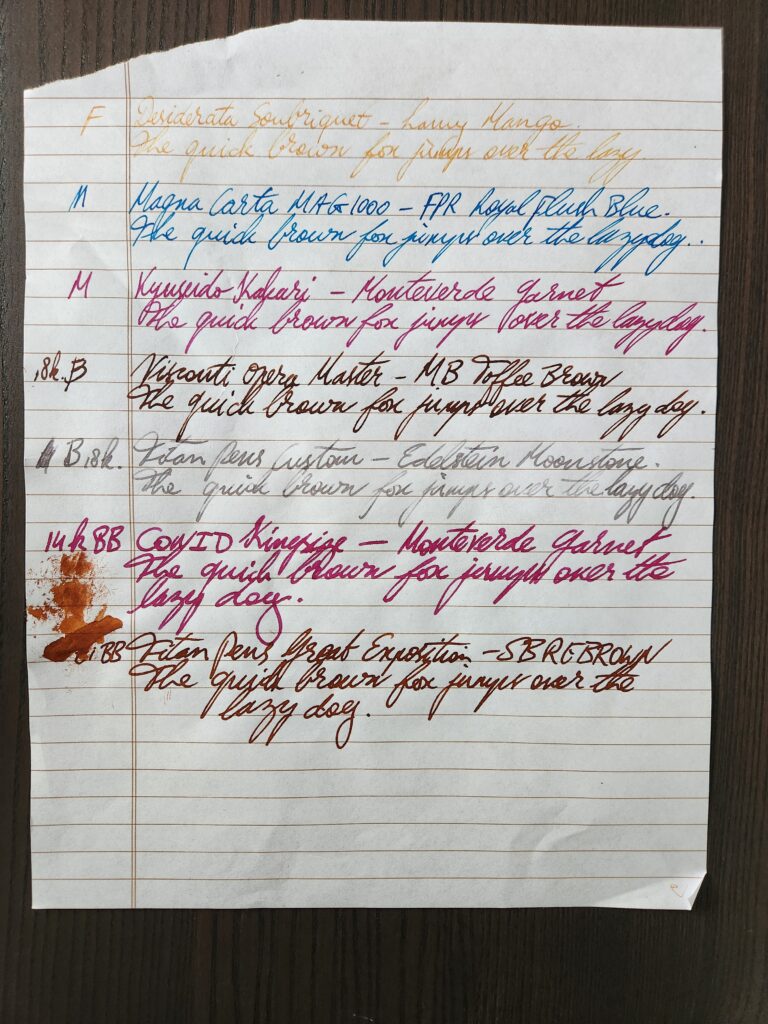 F Desiderata Soubriquet - Lamy Mango.
The quick brown fox jumps over the lazy.
M Magna Carta MAG1000 - FPR Royal Plush Blue.
The quick brown fox jumps over the lazy dog..
M Kyuseido Kakari - Monteverde Garnet
The quick brown fox jumps over the lazy dog.
18k. B Visconti Opera Master - MB Toffee Brown
The quick brown fox jumps over the lazy dog.
B 18k. Titan Pens Custom - Edelstein Moonstone.
The quick brown fox jumps over the lazy dog.
14k BB COWID Kingsize - Monteverde Garnet
The quick brown fox jumps over the
lazy dog.
BB Titan Pens Great Exposition - SBREBROWN
The quick brown fox jumps over the
lazy dog.